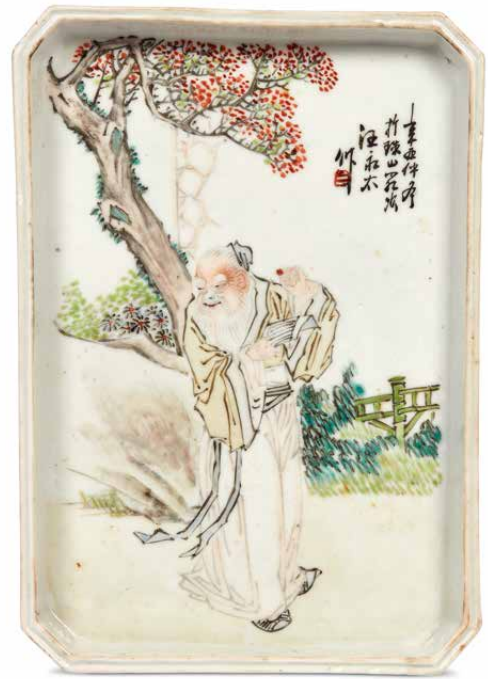 辛酉仲冬
於珠山客次
汪永太
作